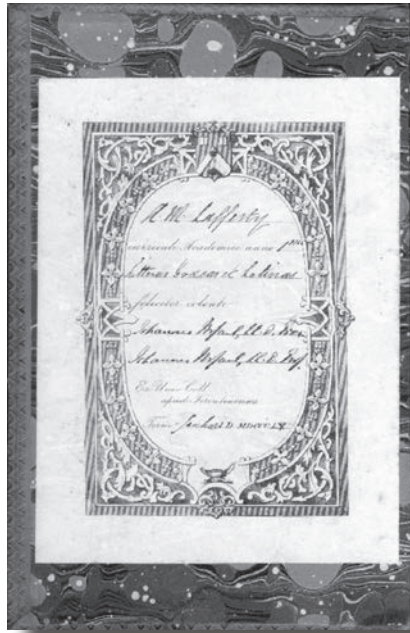 A M Lafferty
Academico anno
litteras Graecas et Latinas
feliciter colenti
Johannes McCaul, LL.D.
Johannes McCaul, LL.D. Prof.
Ex Univ. Coll.
apud Torontonenses
Term. MDCCCLX